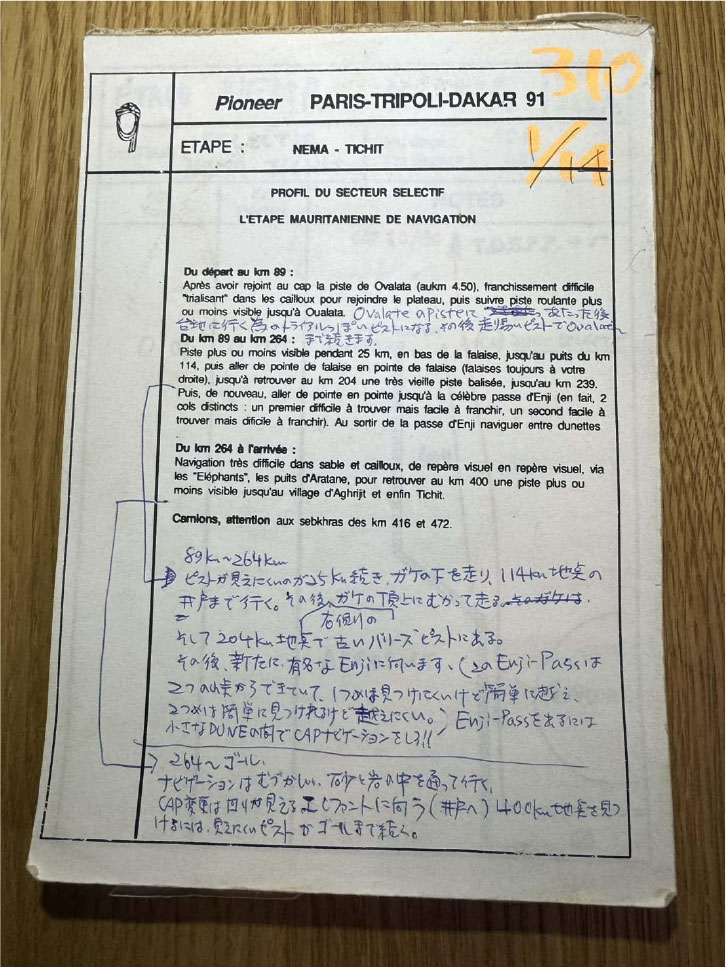 310
1/14
Pioneer PARIS-TRIPOLI-DAKAR 91
ETAPE : NEMA - TICHIT
PROFIL DU SECTEUR SELECTIF
L'ETAPE MAURITANIENNE DE NAVIGATION
Du départ au km 89 :
Après avoir rejoint au cap la piste de Ovalata (aukm 4.50), franchissement difficile
"trialisant" dans les cailloux pour rejoindre le plateau, puis suivre piste roulante plus
ou moins visible jusqu'à Oualata. Ovalate のpisteに あたった後
台地に行く為のトライアルっぽいピストになる。その後走り易いピストでOvalata
Du km 89 au km 264 : まで続きます。
Piste plus ou moins visible pendant 25 km, en bas de la falaise, jusqu'au puits du km
114, puis aller de pointe de falaise en pointe de falaise (falaises toujours à votre
droite), jusqu'à retrouver au km 204 une très vieille piste balisée, jusqu'au km 239.
Puis, de nouveau, aller de pointe en pointe jusqu'à la célèbre passe d'Enji (en fait, 2
cols distincts : un premier difficile à trouver mais facile à franchir, un second facile à
trouver mais dificile à franchir). Au sortir de la passe d'Enji naviguer entre dunettes
Du km 264 à l'arrivée :
Navigation très difficile dans sable et cailloux, de repère visuel en repère visuel, via
les "Eléphants", les puits d'Aratane, pour retrouver au km 400 une piste plus ou
moins visible jusqu'au village d'Aghrijit et enfin Tichit.
Camions, attention aux sebkhras des km 416 et 472.
89km〜264km
ピストが見えにくいのが25km続き、ガケの下を走り、114km地点の
井戸まで行く。その後、ガケの頂上にむかって走る。そのガケは
右側りの
そして204km地点で古いバリーズピストにある。
その後、新たに、有名なEnjiに向います、(このEnji-Passは
2つの峠からできていて、1つめは見つけにくいけど簡単に越え、
2つめは簡単に見つけれるけど越えにくい。) Enji-Passをあるには
小さなDUNEの間でCAPナビゲーションをしろ!!
264〜ゴール.
ナビゲーションはむづかしい、砂と岩の中を通って行く、
CAP変更は回りが見えるエレファントに向う(井戸へ) 400km地点を見つ
けるには、見えにくいピストがゴールまで続く。